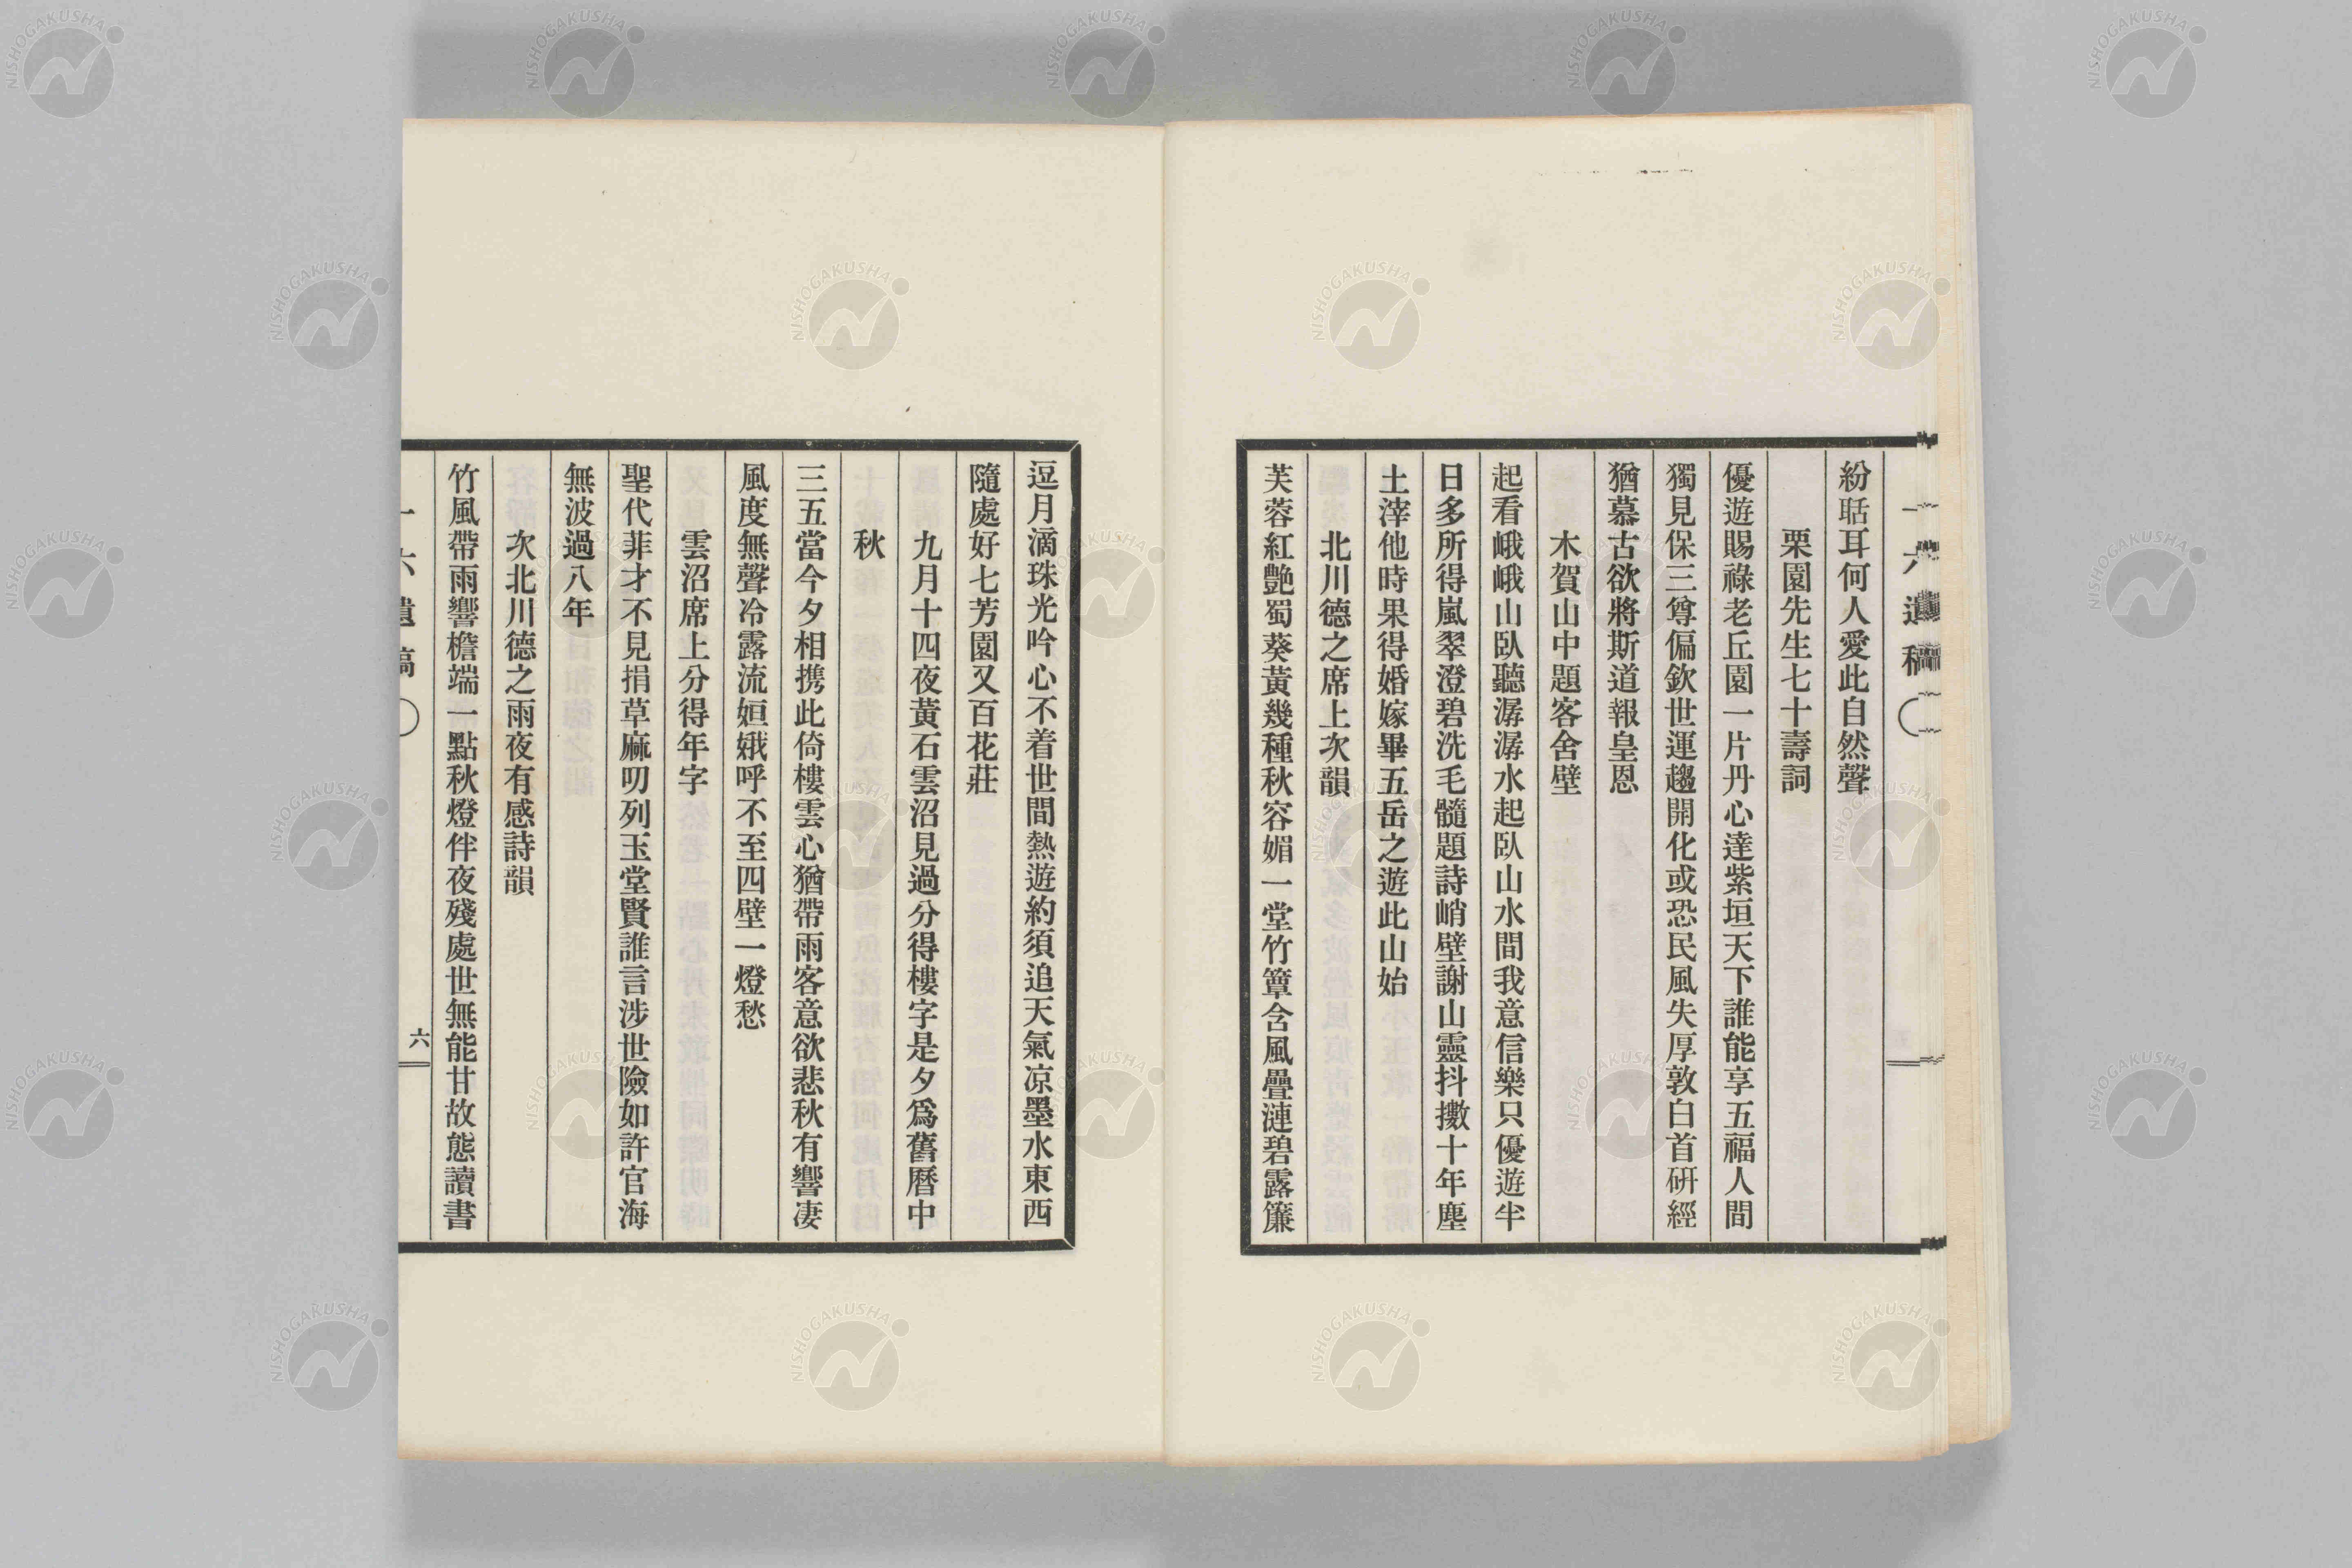 一六遺稿
紛聒耳何人愛此自然聲
栗園先生七十壽詞
優遊賜祿老丘園一片丹心達紫垣天下誰能享五福人間
獨見保三尊偏欽世運趨開化或恐民風失厚敦白首硏經
猶慕古欲將斯道報皇恩
木賀山中題客舍壁
起看峨峨山臥聽潺潺水起臥山水間我意信樂只優遊半
日多所得嵐翠澄碧洗毛髓題詩峭壁謝山靈抖擻十年塵
土滓他時果得婚嫁畢五岳之遊此山始
北川德之席上次韻
芙蓉紅艶蜀葵黃幾種秋容媚一堂竹簟含風疊漣碧露簾
逗月滴珠光吟心不着世間熱遊約須追天氣凉墨水東西
隨處好七芳園又百花莊
九月十四夜黃石雲沼見過分得樓字是夕爲舊曆中
秋
三五當今夕相携此倚樓雲心猶帶雨客意欲悲秋有響凄
風度無聲冷露流姮娥呼不至四壁一燈愁
雲沼席上分得年字
聖代菲才不見捐草麻叨列玉堂賢誰言涉世險如許官海
無波過八年
次北川德之雨夜有感詩韻
竹風帶雨響檐端一點秋燈伴夜殘處世無能甘故態讀書
一六遺稿
六
NISHOGAKUSHA